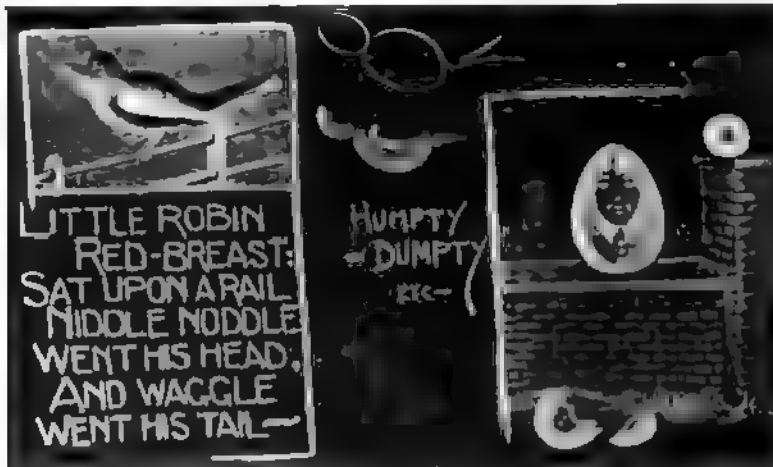 LITTLE ROBIN
RED-BREAST:
SAT UPON A RAIL
NIDDLE NODDLE
WENT HIS HEAD.
AND WAGGLE
WENT HIS TAIL—
HUMPTY
DUMPTY
ETC—